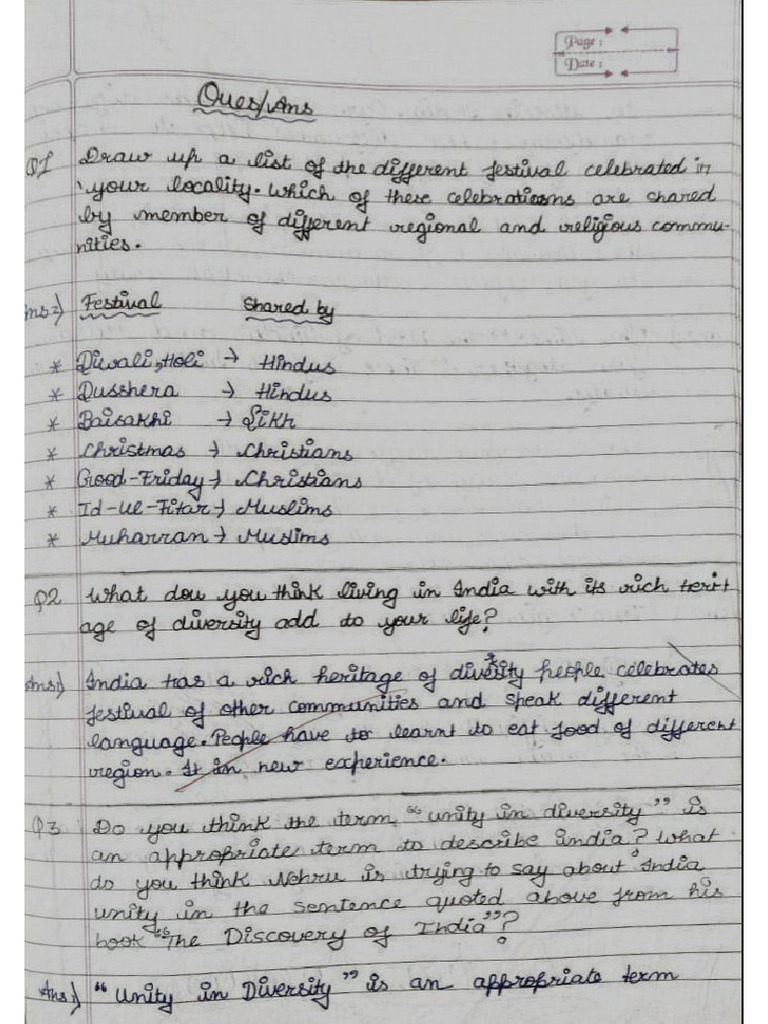 Page :
Date :
Ques/Ans
Q1 Draw up a list of the different festival celebrated in
your locality. Which of these celebrations are shared
by member of different regional and religious commu-
nities.
Ans:) Festival Shared by
* Diwali, Holi → Hindus
* Dusshera → Hindus
* Baisakhi → Sikh
* Christmas → Christians
* Good-Friday → Christians
* Id-Ul-Fitar → Muslims
* Muharran → Muslims
Q2 What dou you think living in India with its rich herit
age of diversity add to your life?
Ans:) India has a rich heritage of diversity people celebrates
festival of other communities and speak different
language. People have to learnt to eat food of different
region. It in new experience.
Q3 Do you think the term "unity in diversity" is
an appropriate term to describe india? What
do you think Nehru is trying to say about India
unity in the sentence quoted above from his
book "The Discovery of India"?
Ans:) "Unity in Diversity" is an appropriate term